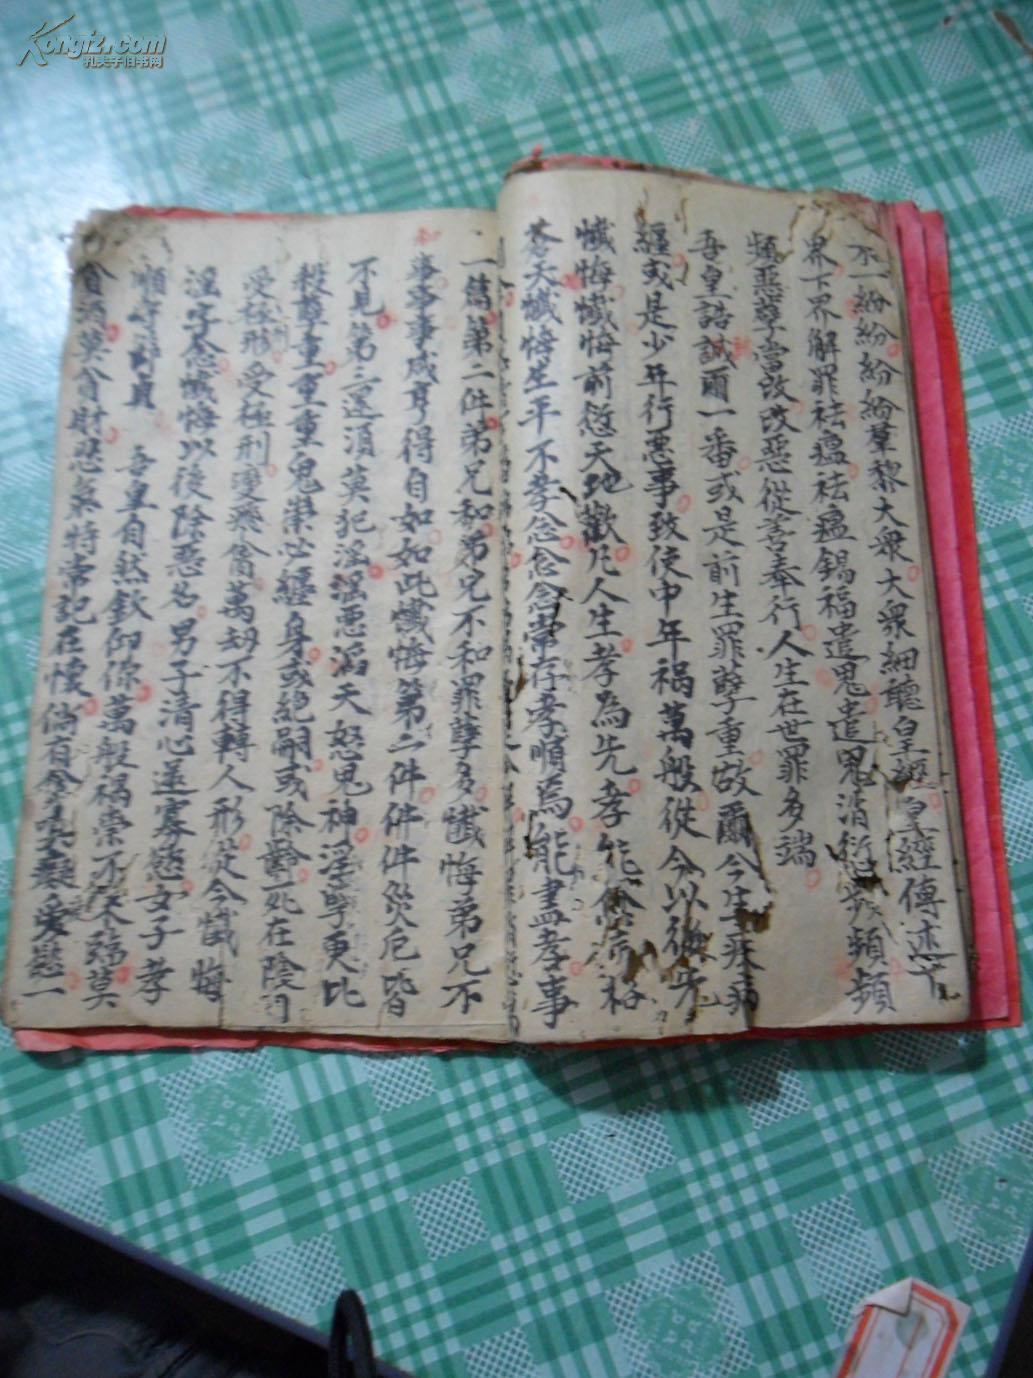 Kongfz.com
孔夫子旧书网
不一紛紛紛紛羣黎大衆大衆細聽皇經皇經傳述下
界下界解罪祛瘟祛瘟錫福遣鬼遣鬼消愆頻頻
惡孽當改改惡從善奉行人生在世罪多端
吾皇誥誡爾一番或是前生罪孽重故爾今生疾病
纏或是少年行惡事致使中年禍萬般從今以後先
懺悔懺悔前愆天地歡凡人生孝為先孝能格
蒼天懺悔生平不孝念念念常存孝順為能盡孝事
一篇第二件弟兄和弟兄不和罪孽多懺悔弟兄不
和事事事成亨得自如如此懺悔第二件件件災厄皆
不見第三還須莫犯滛滛惡滔天怒鬼神滛孽更比
殺孽重重重鬼祟必纏身或絕嗣或除齡死在陰司
受極刑受極刑變飛禽萬刼不得轉人形從今懺悔
滛字念懺悔以後除惡名男子清心並寡慾女子孝
順守貞吾皇自然欽仰你萬般禍祟不來臨莫
貪酒莫貪財悲氣時常記在懷倘有貪嗔癡愛慾一